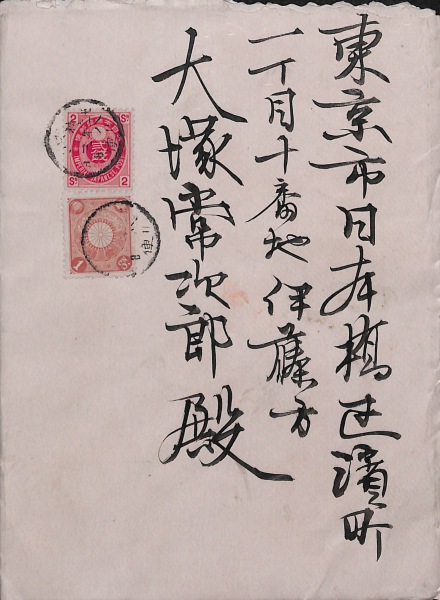 東京市日本橋区濱町
一丁目十番地伊藤方
大塚常次郎殿
2 Sⁿ
Sⁿ 2
1